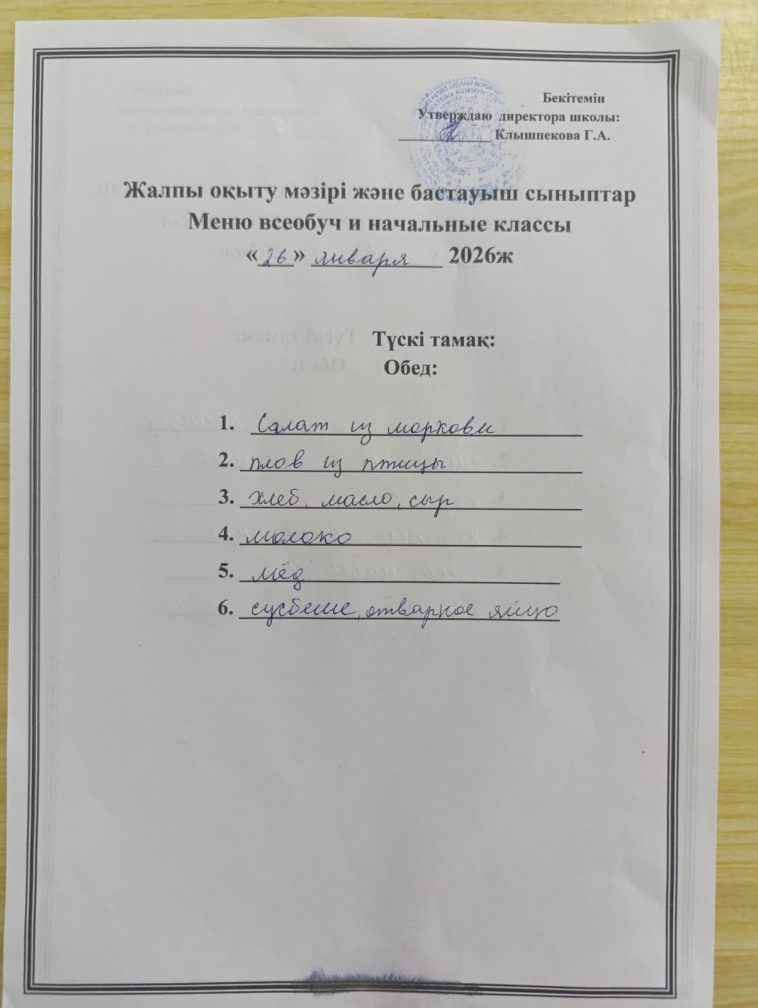 Бекітемін
Утверждаю директора школы:
____________ Клышпекова Г.А.
Жалпы оқыту мәзірі және бастауыш сыныптар
Меню всеобуч и начальные классы
«26» января 2026ж
Түскі тамақ:
Обед:
1. Салат из моркови
2. плов из птицы
3. хлеб, масло, сыр
4. молоко
5. мёд
6. сусбеше, отварное яйцо